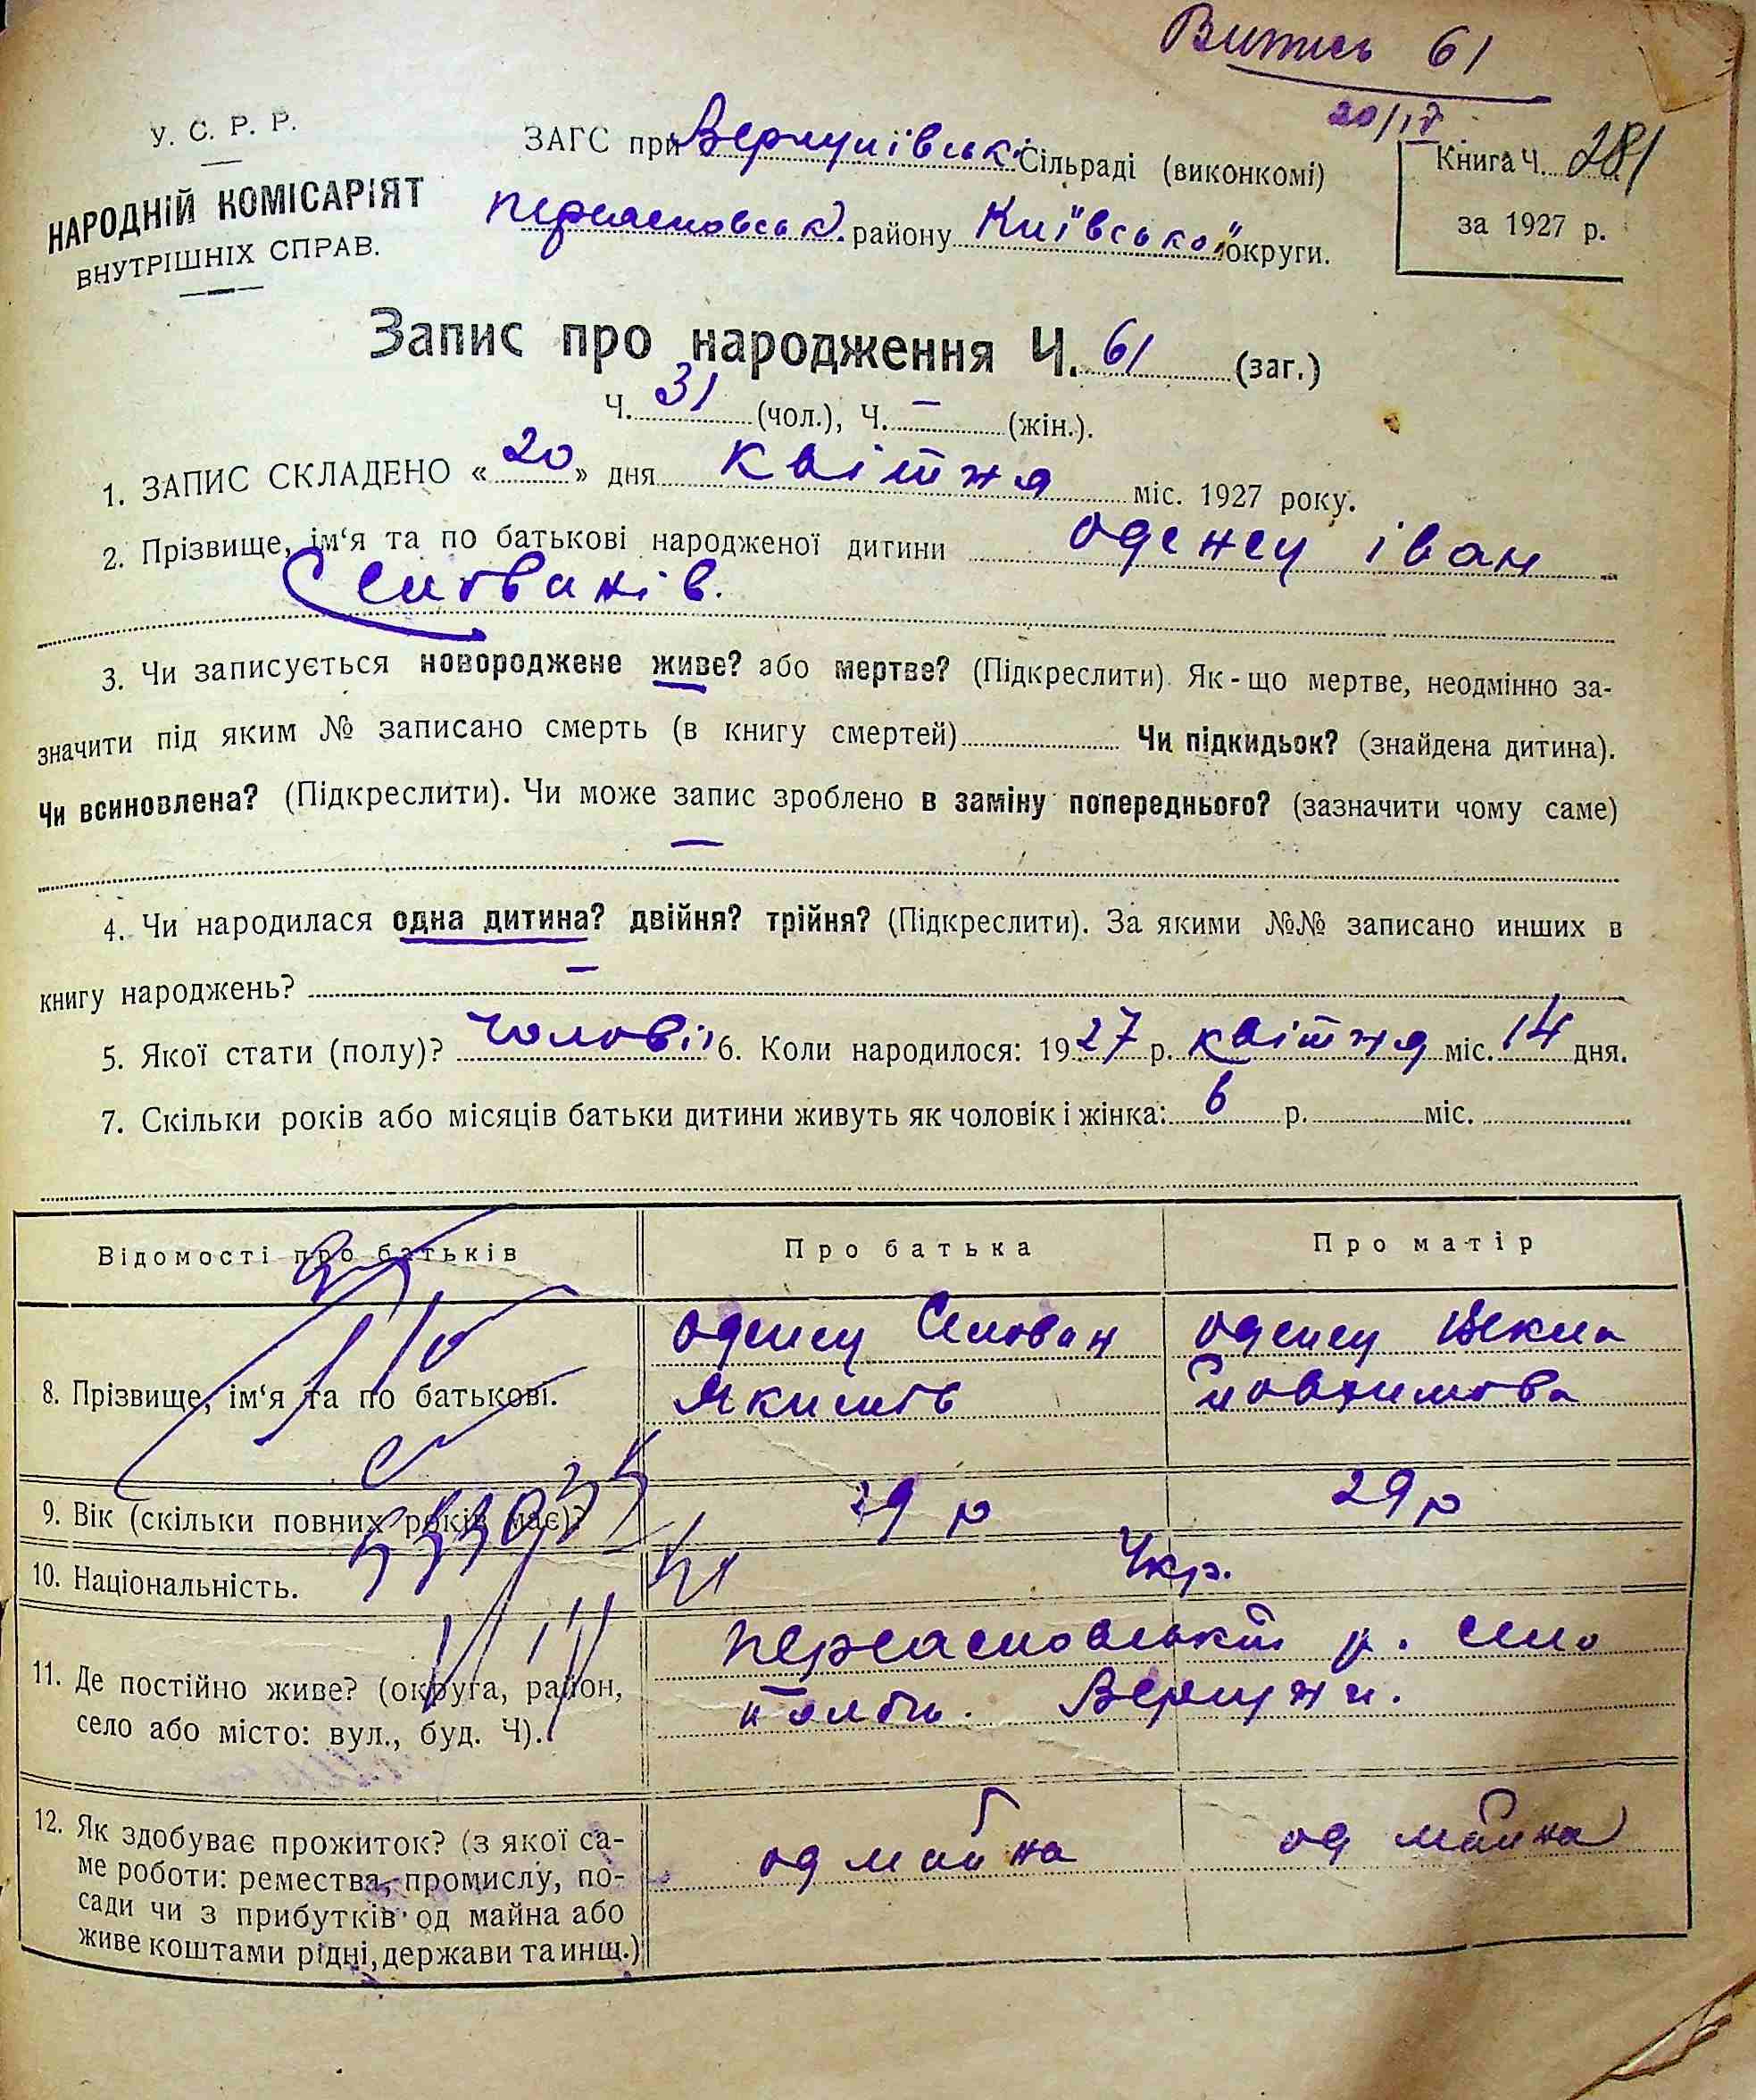 Витись 61
20/IV
У. С. Р. Р.
НАРОДНІЙ КОМІСАРІЯТ
ВНУТРІШНІХ СПРАВ.
ЗАГС при Сільраді (виконкомі)
району Київської округи.
Книга Ч. 281
за 1927 р.
Запис про народження Ч. 61 (заг.)
Ч. 31 (чол.), Ч. – (жін.).
1. ЗАПИС СКЛАДЕНО « 20 » дня квітня міс. 1927 року.
2. Прізвище, ім‘я та по батькові народженої дитини Іван
3. Чи записується новороджене живе? або мертве? (Підкреслити). Як-що мертве, неодмінно за-
значити під яким № записано смерть (в книгу смертей) Чи підкидьок? (знайдена дитина).
Чи всиновлена? (Підкреслити). Чи може запис зроблено в заміну попереднього? (зазначити чому саме)
–
4. Чи народилася одна дитина? двійня? трійня? (Підкреслити). За якими №№ записано инших в
книгу народжень? –
5. Якої стати (полу)? чолові 6. Коли народилося: 1927 р. квітня міс. 14 дня.
7. Скільки років або місяців батьки дитини живуть як чоловік і жінка: 6 р. міс.
Відомості про батьків
Про батька
Про матір
8. Прізвище, ім‘я та по батькові.
Якимів
9. Вік (скільки повних років має)?
29 р
29 р
10. Національність.
Укр.
11. Де постійно живе? (округа, район,
село або місто: вул., буд. Ч).
р. село
12. Як здобуває прожиток? (з якої са-
ме роботи: ремества, промислу, по-
сади чи з прибутків од майна або
живе коштами рідні, держави та инш.)
од майна
од майна